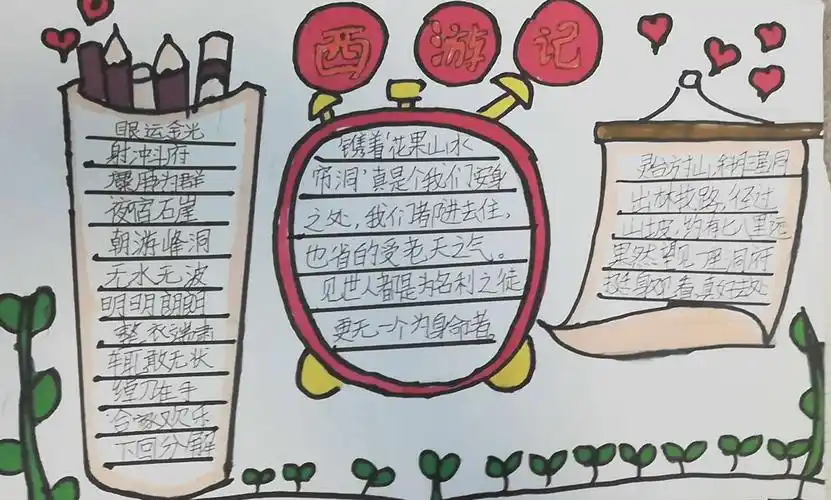 西游记
眼运金光
射冲斗府
獐鹿为群
夜宿石崖
朝游峰洞
无水无波
明明朗朗
整衣端肃
辄敢无状
绰刀在手
合家欢乐
下回分解
镌着‘花果山水
帘洞’真是个我们安身
之处，我们都进去住，
也省的受老天之气。
见世人都是为名利之徒
更无一个为身命者。
灵台方寸山，斜月三星洞
出林找路，径过
山坡，约有七八里远
果然望见一座洞府
挺身观看真好去处